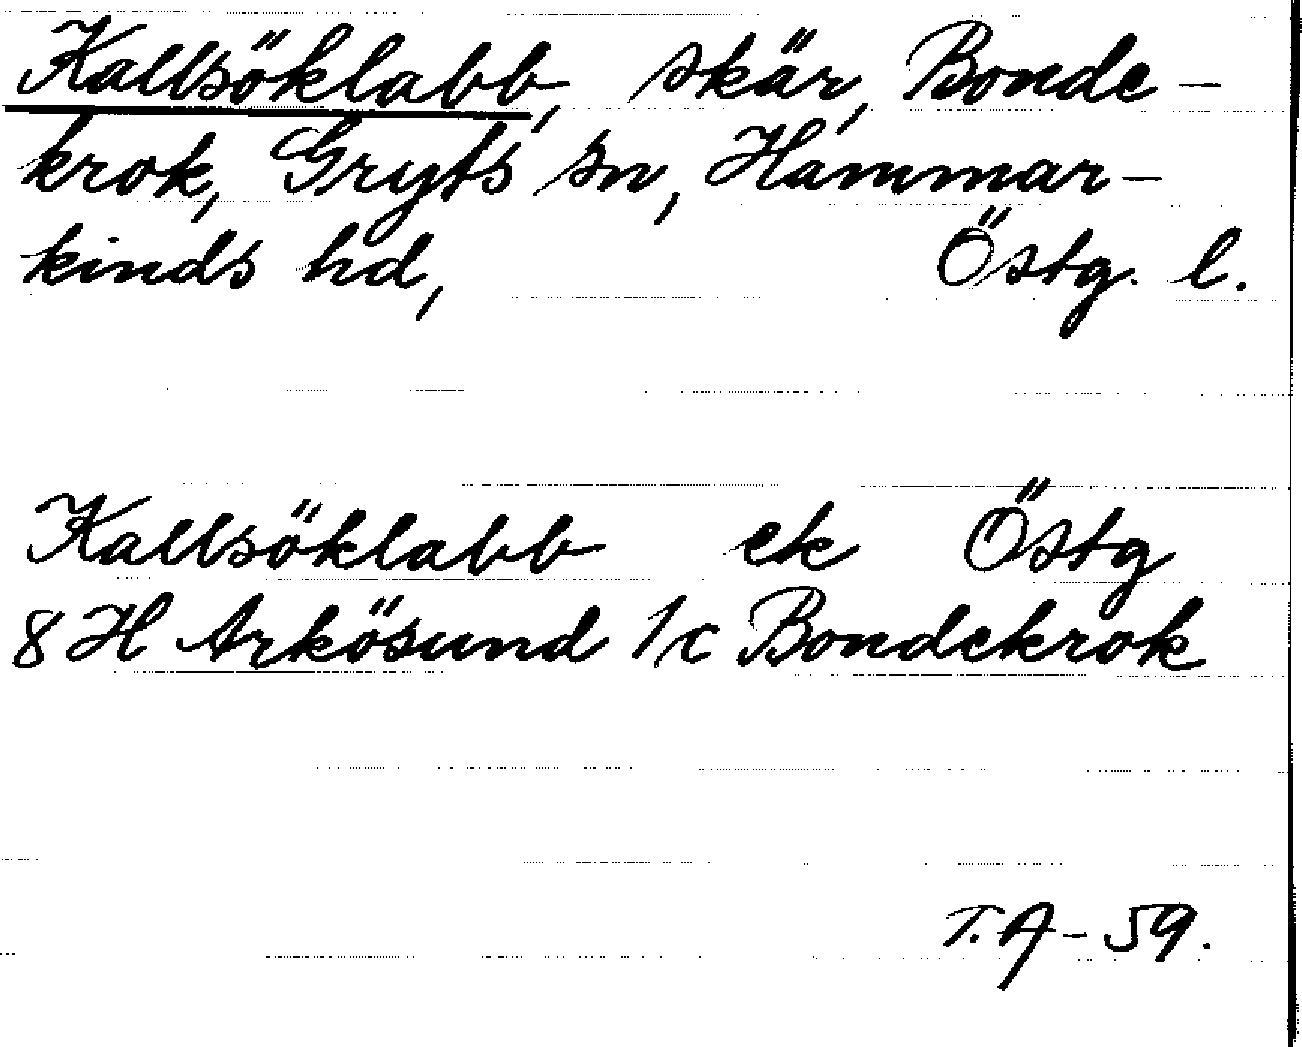 Kallsöklabb, skär, Bonde-
krok, Gryts sn, Hammar-
kinds hd, Östg. l.
Kallsöklabb ek Östg
8 H Arkösund 1c Bondekrok
T. A-59.